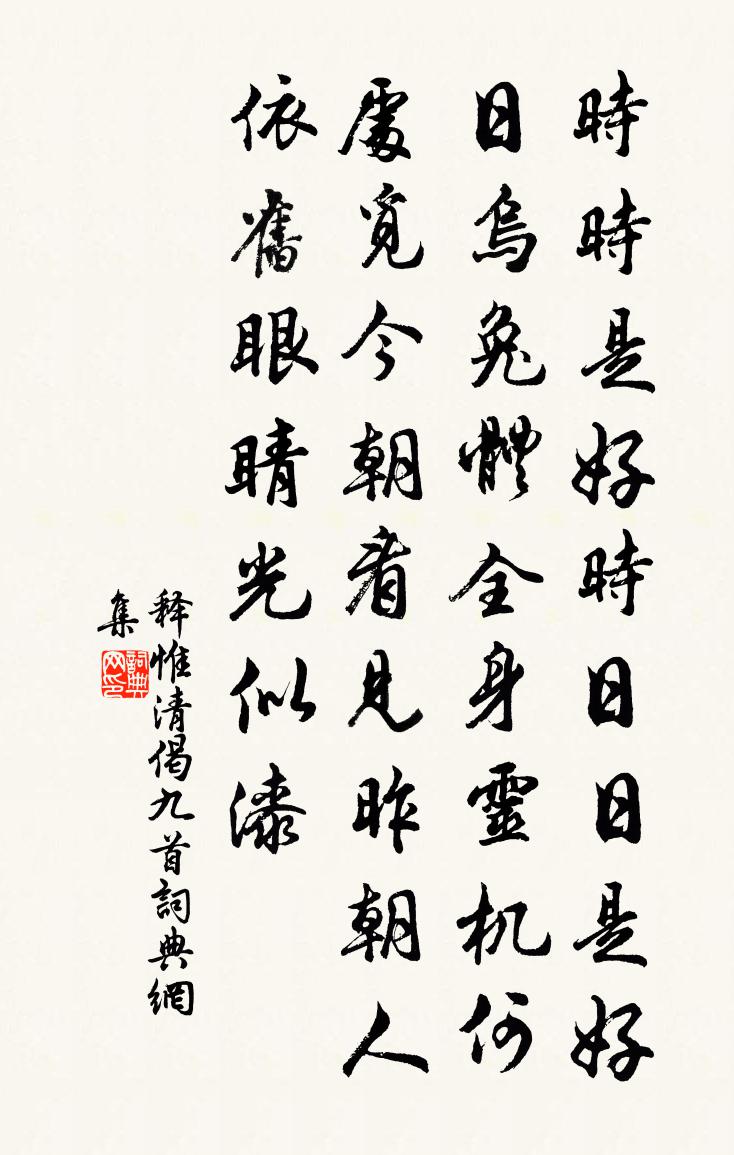 時時是好時日日是好
日烏兔體全身靈机何
處覓今朝看見昨朝人
依舊眼睛光似漆
释惟清偈九首詞典網
集
詞典网印